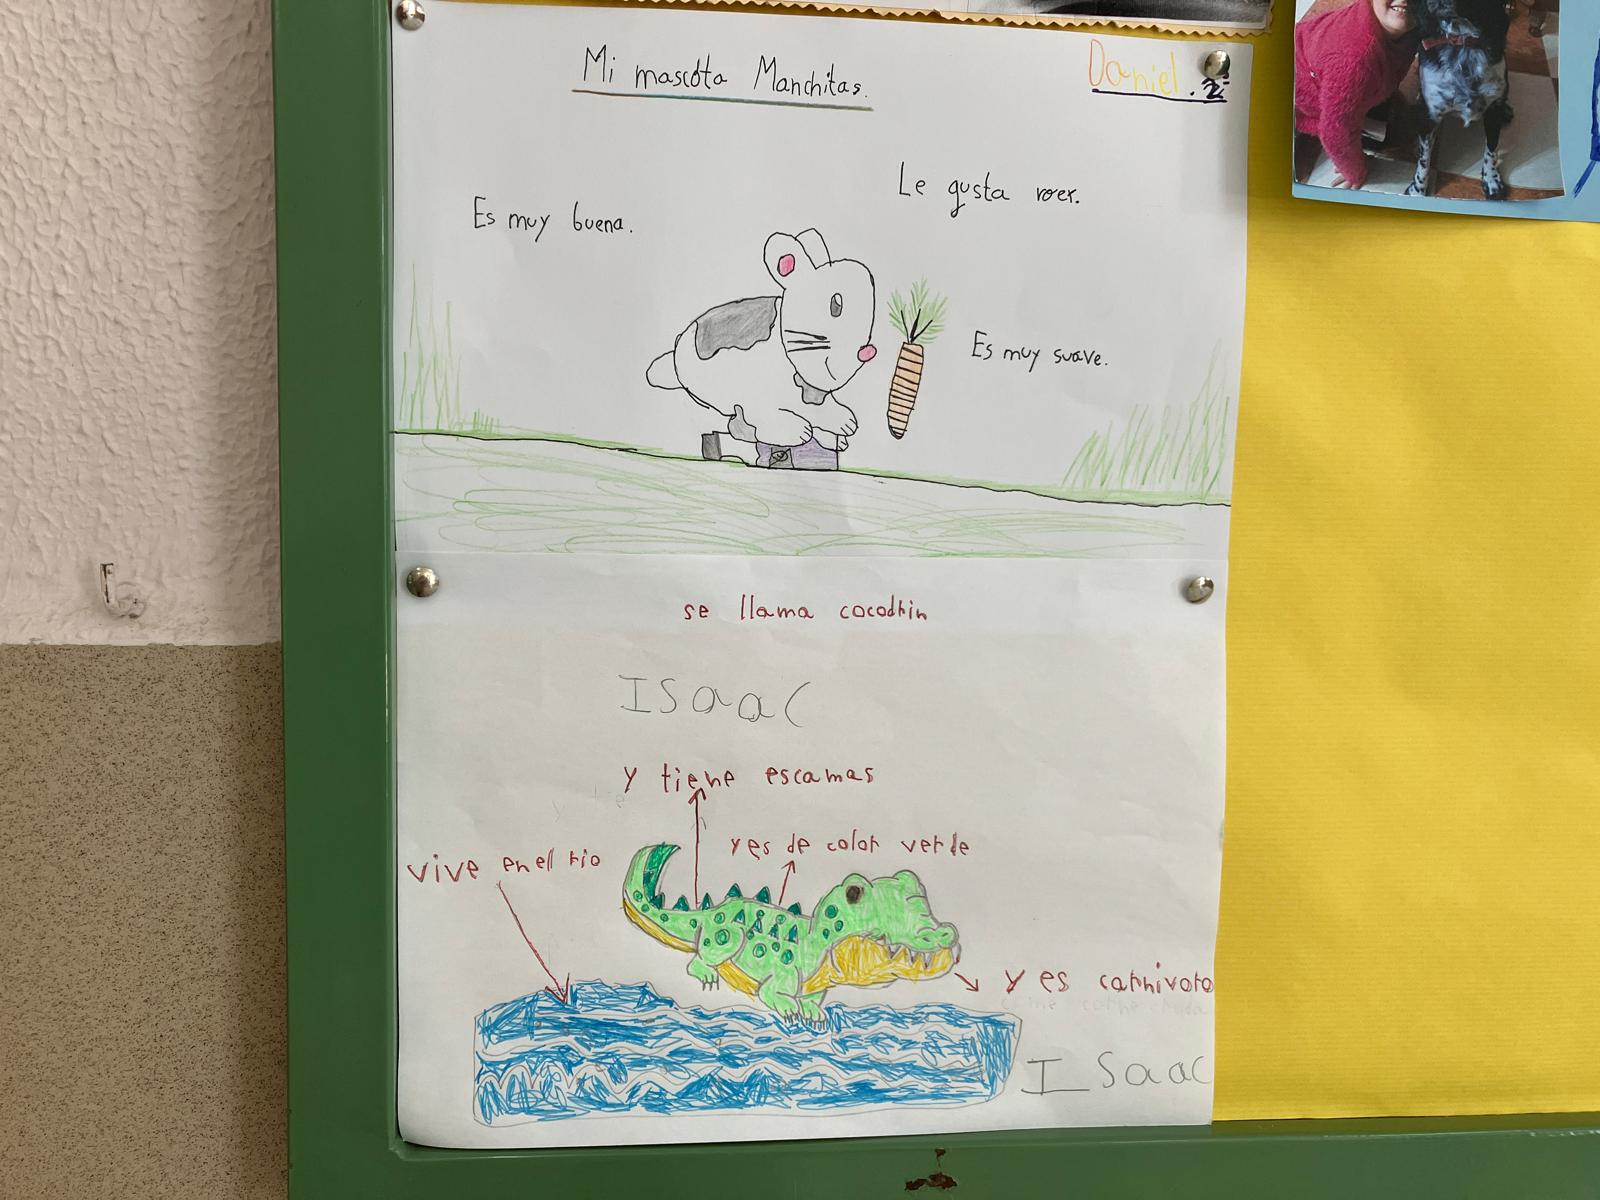 Mi mascota Manchitas.
Daniel. 2º
Le gusta roer.
Es muy buena.
Es muy suave.
se llama cocodrin
ISaac
y tiene escamas
y es de color verde
vive en el rio
y es carnivoro
ISaac